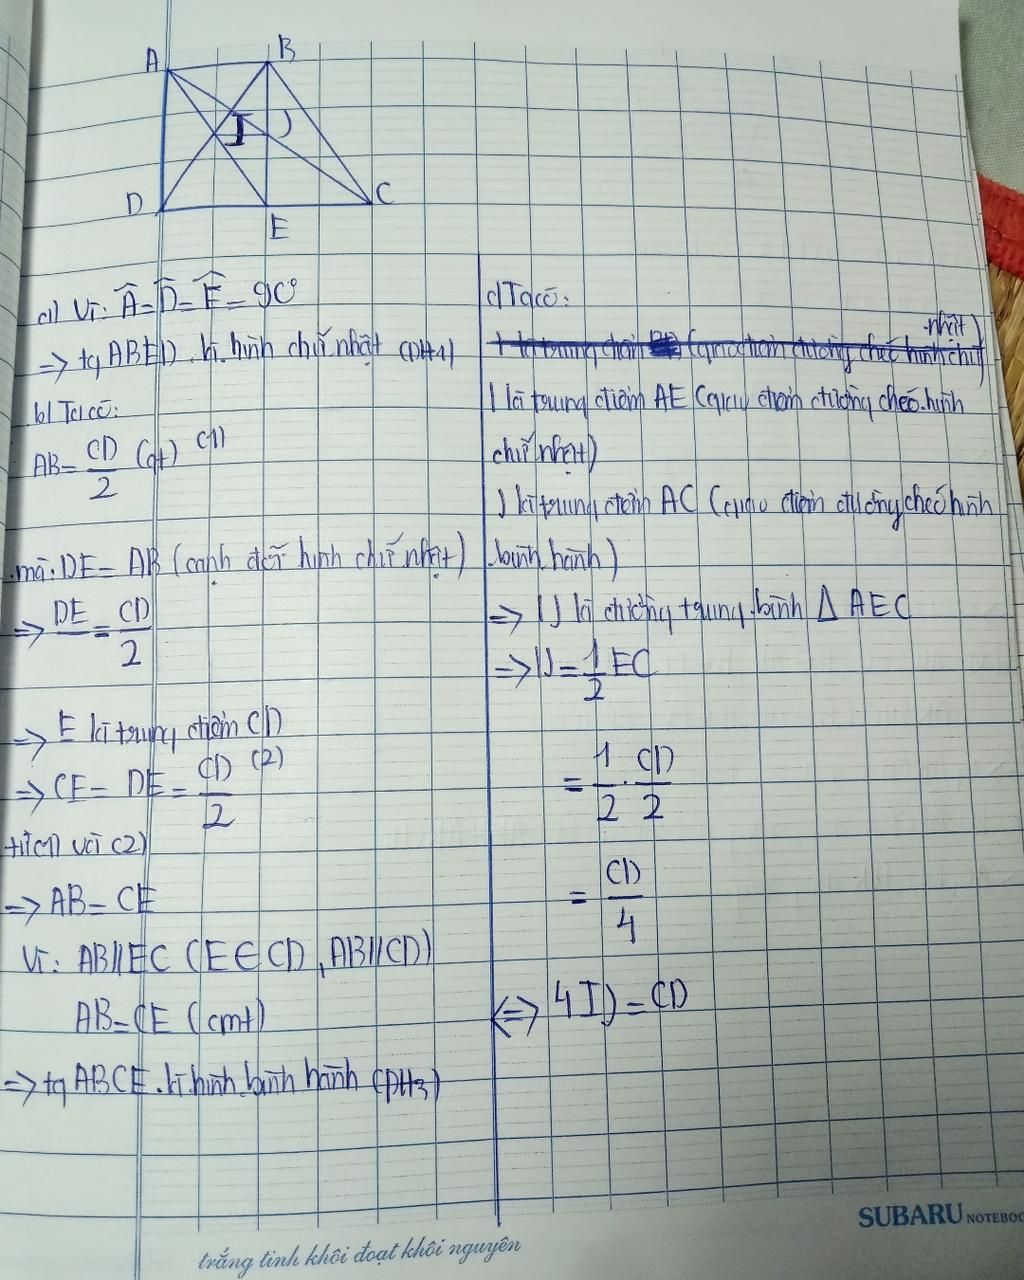 A
B
I
J
D
C
E
a) Vì: Â = D̂ = Ê = 90°
=> tg ABED là hình chữ nhật (DH1)
b) Ta có:
AB = CD/2 (gt) (1)
mà: DE = AB (cạnh đối hình chữ nhật)
=> DE = CD/2
=> E là trung điểm CD
=> CE = DE = CD/2 (2)
từ (1) và (2)
=> AB = CE
Vì: AB // EC (E ∈ CD, AB // CD)
AB = CE (cmt)
=> tg ABCE là hình bình hành (DH3)
c) Ta có:
nhật)
I là trung điểm AE (giao điểm đường chéo hình
chữ nhật)
J là trung điểm AC (giao điểm đường chéo hình
bình hành)
=> IJ là đường trung bình Δ AEC
=> IJ = 1/2 EC
= 1/2 . CD/2
= CD/4
<=> 4IJ = CD
SUBARU NOTEBOO
trắng tinh khôi đoạt khôi nguyên